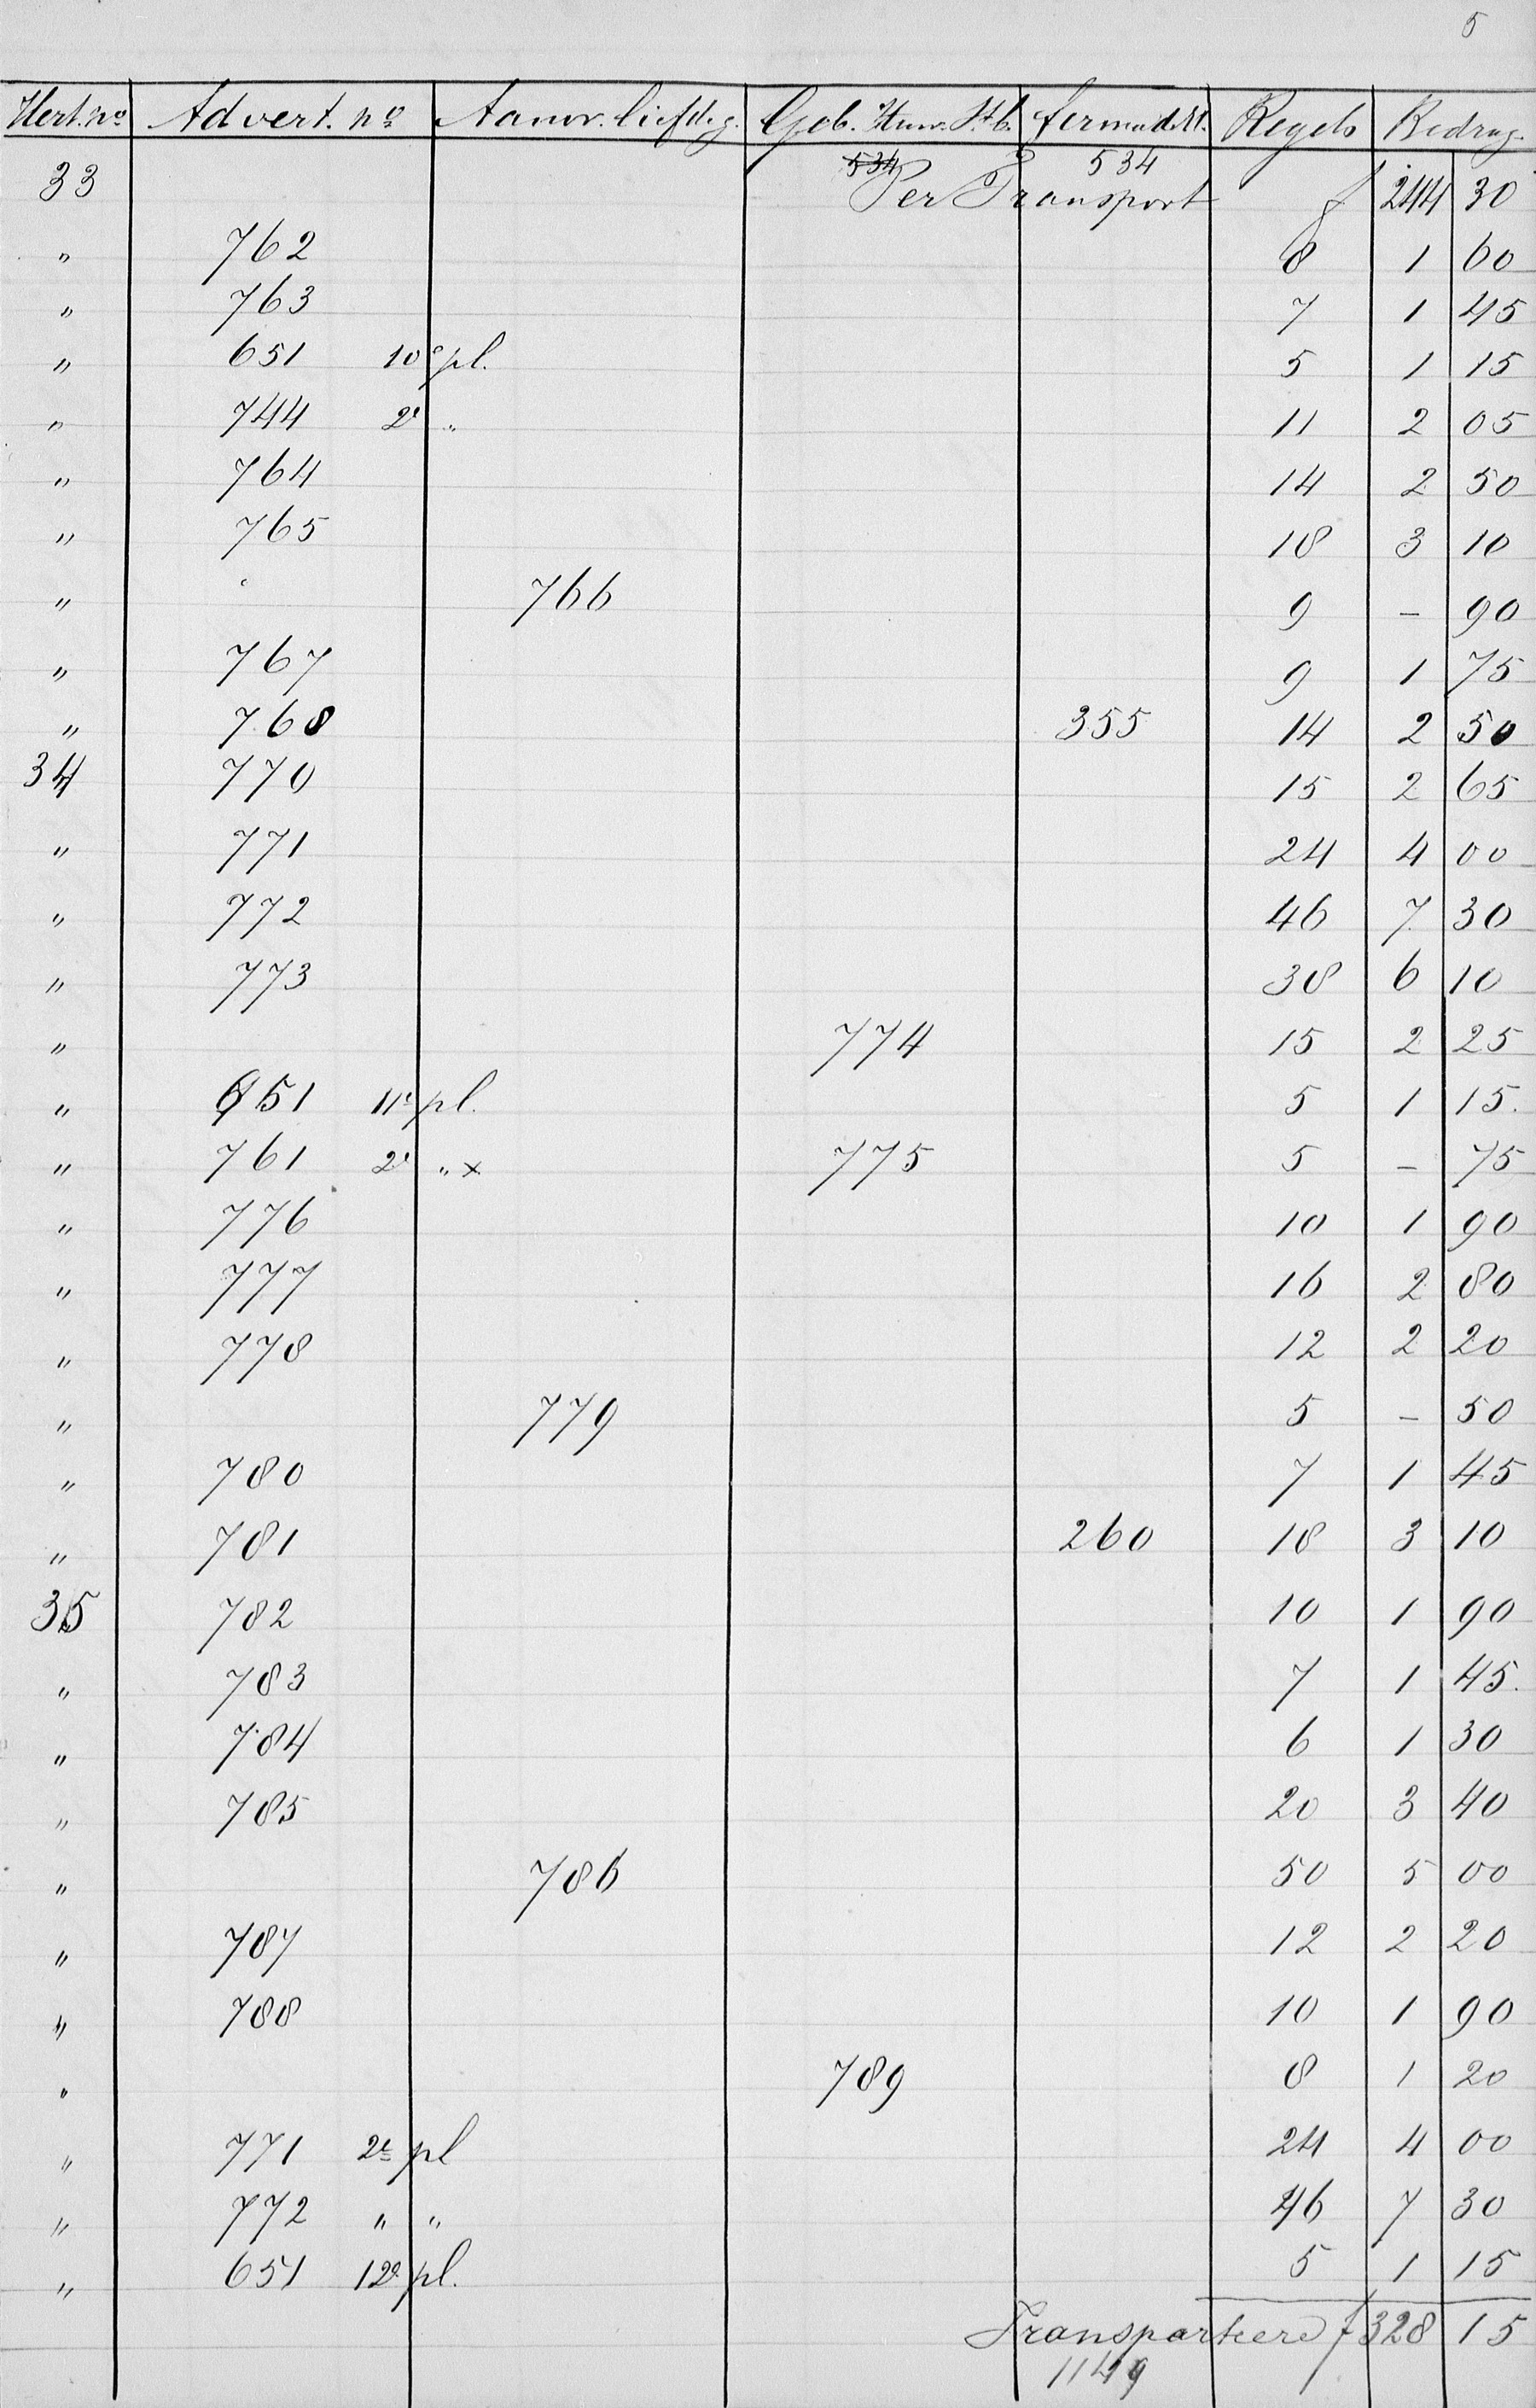 5
Hert. no Advert. no Aanw. liefdeg. Geb. Huw. Stb. fermeddt. Regels Bedrag.
534 534
33 Per Transport f 244 30
" 762 8 1 60
" 763 7 1 45
" 651 10e pl. 5 1 15
" 744 2e " 11 2 05
" 764 14 2 50
" 765 18 3 10
" 766 9 - 90
" 767 9 1 75
" 768 355 14 2 50
34 770 15 2 65
" 771 24 4 00
" 772 46 7 30
" 773 38 6 10
" 774 15 2 25
" 651 11e pl. 5 1 15.
" 761 2e " x 775 5 - 75
" 776 10 1 90
" 777 16 2 80
" 778 12 2 20
" 779 5 - 50
" 780 7 1 45
" 781 260 18 3 10
35 782 10 1 90
" 783 7 1 45.
" 784 6 1 30
" 785 20 3 40
" 786 50 5 00
" 787 12 2 20
" 788 10 1 90
" 789 8 1 20
" 771 2e pl 24 4 00
" 772 " " 46 7 30
" 651 12e pl. 5 1 15
Transporteere f 328 15
1149